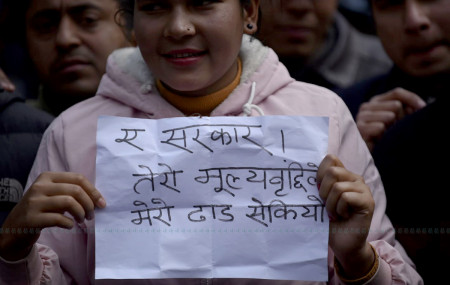 ए सरकार ।
तेरो मूल्यवृद्दिले
मेरो ढाड सेकियो